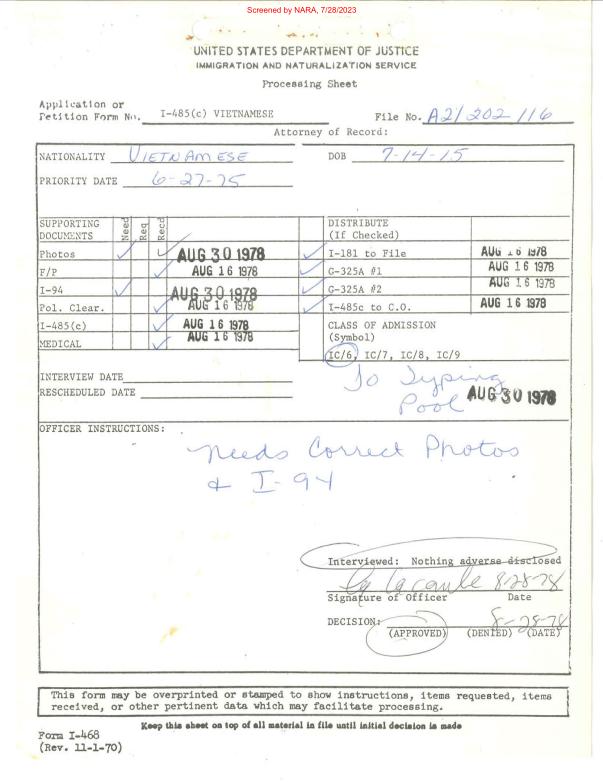 Screened by NARA, 7/28/2023
UNITED STATES DEPARTMENT OF JUSTICE
IMMIGRATION AND NATURALIZATION SERVICE
Processing Sheet
Application or
Petition Form No. I-485(c) VIETNAMESE File No. A21 202 116
Attorney of Record:
NATIONALITY VIETNAMESE DOB 7-14-15
PRIORITY DATE 6-27-75
SUPPORTING DOCUMENTS Need Req Recd DISTRIBUTE (If Checked)
Photos ✓ ✓ AUG 30 1978 ✓ I-181 to File AUG 16 1978
F/P ✓ AUG 16 1978 ✓ G-325A #1 AUG 16 1978
I-94 ✓ AUG 30 1978 ✓ G-325A #2 AUG 16 1978
Pol. Clear. ✓ AUG 16 1978 ✓ I-485c to C.O. AUG 16 1978
I-485(c) ✓ AUG 16 1978 CLASS OF ADMISSION
(Symbol)
MEDICAL ✓ AUG 16 1978
IC/6, IC/7, IC/8, IC/9
INTERVIEW DATE To Typing
RESCHEDULED DATE Pool AUG 30 1978
OFFICER INSTRUCTIONS:
Needs Correct Photos
& I-94
Interviewed: Nothing adverse disclosed
8-28-78
Signature of Officer Date
DECISION: 8-28-78
(APPROVED) (DENIED) (DATE)
This form may be overprinted or stamped to show instructions, items requested, items
received, or other pertinent data which may facilitate processing.
Keep this sheet on top of all material in file until initial decision is made
Form I-468
(Rev. 11-1-70)